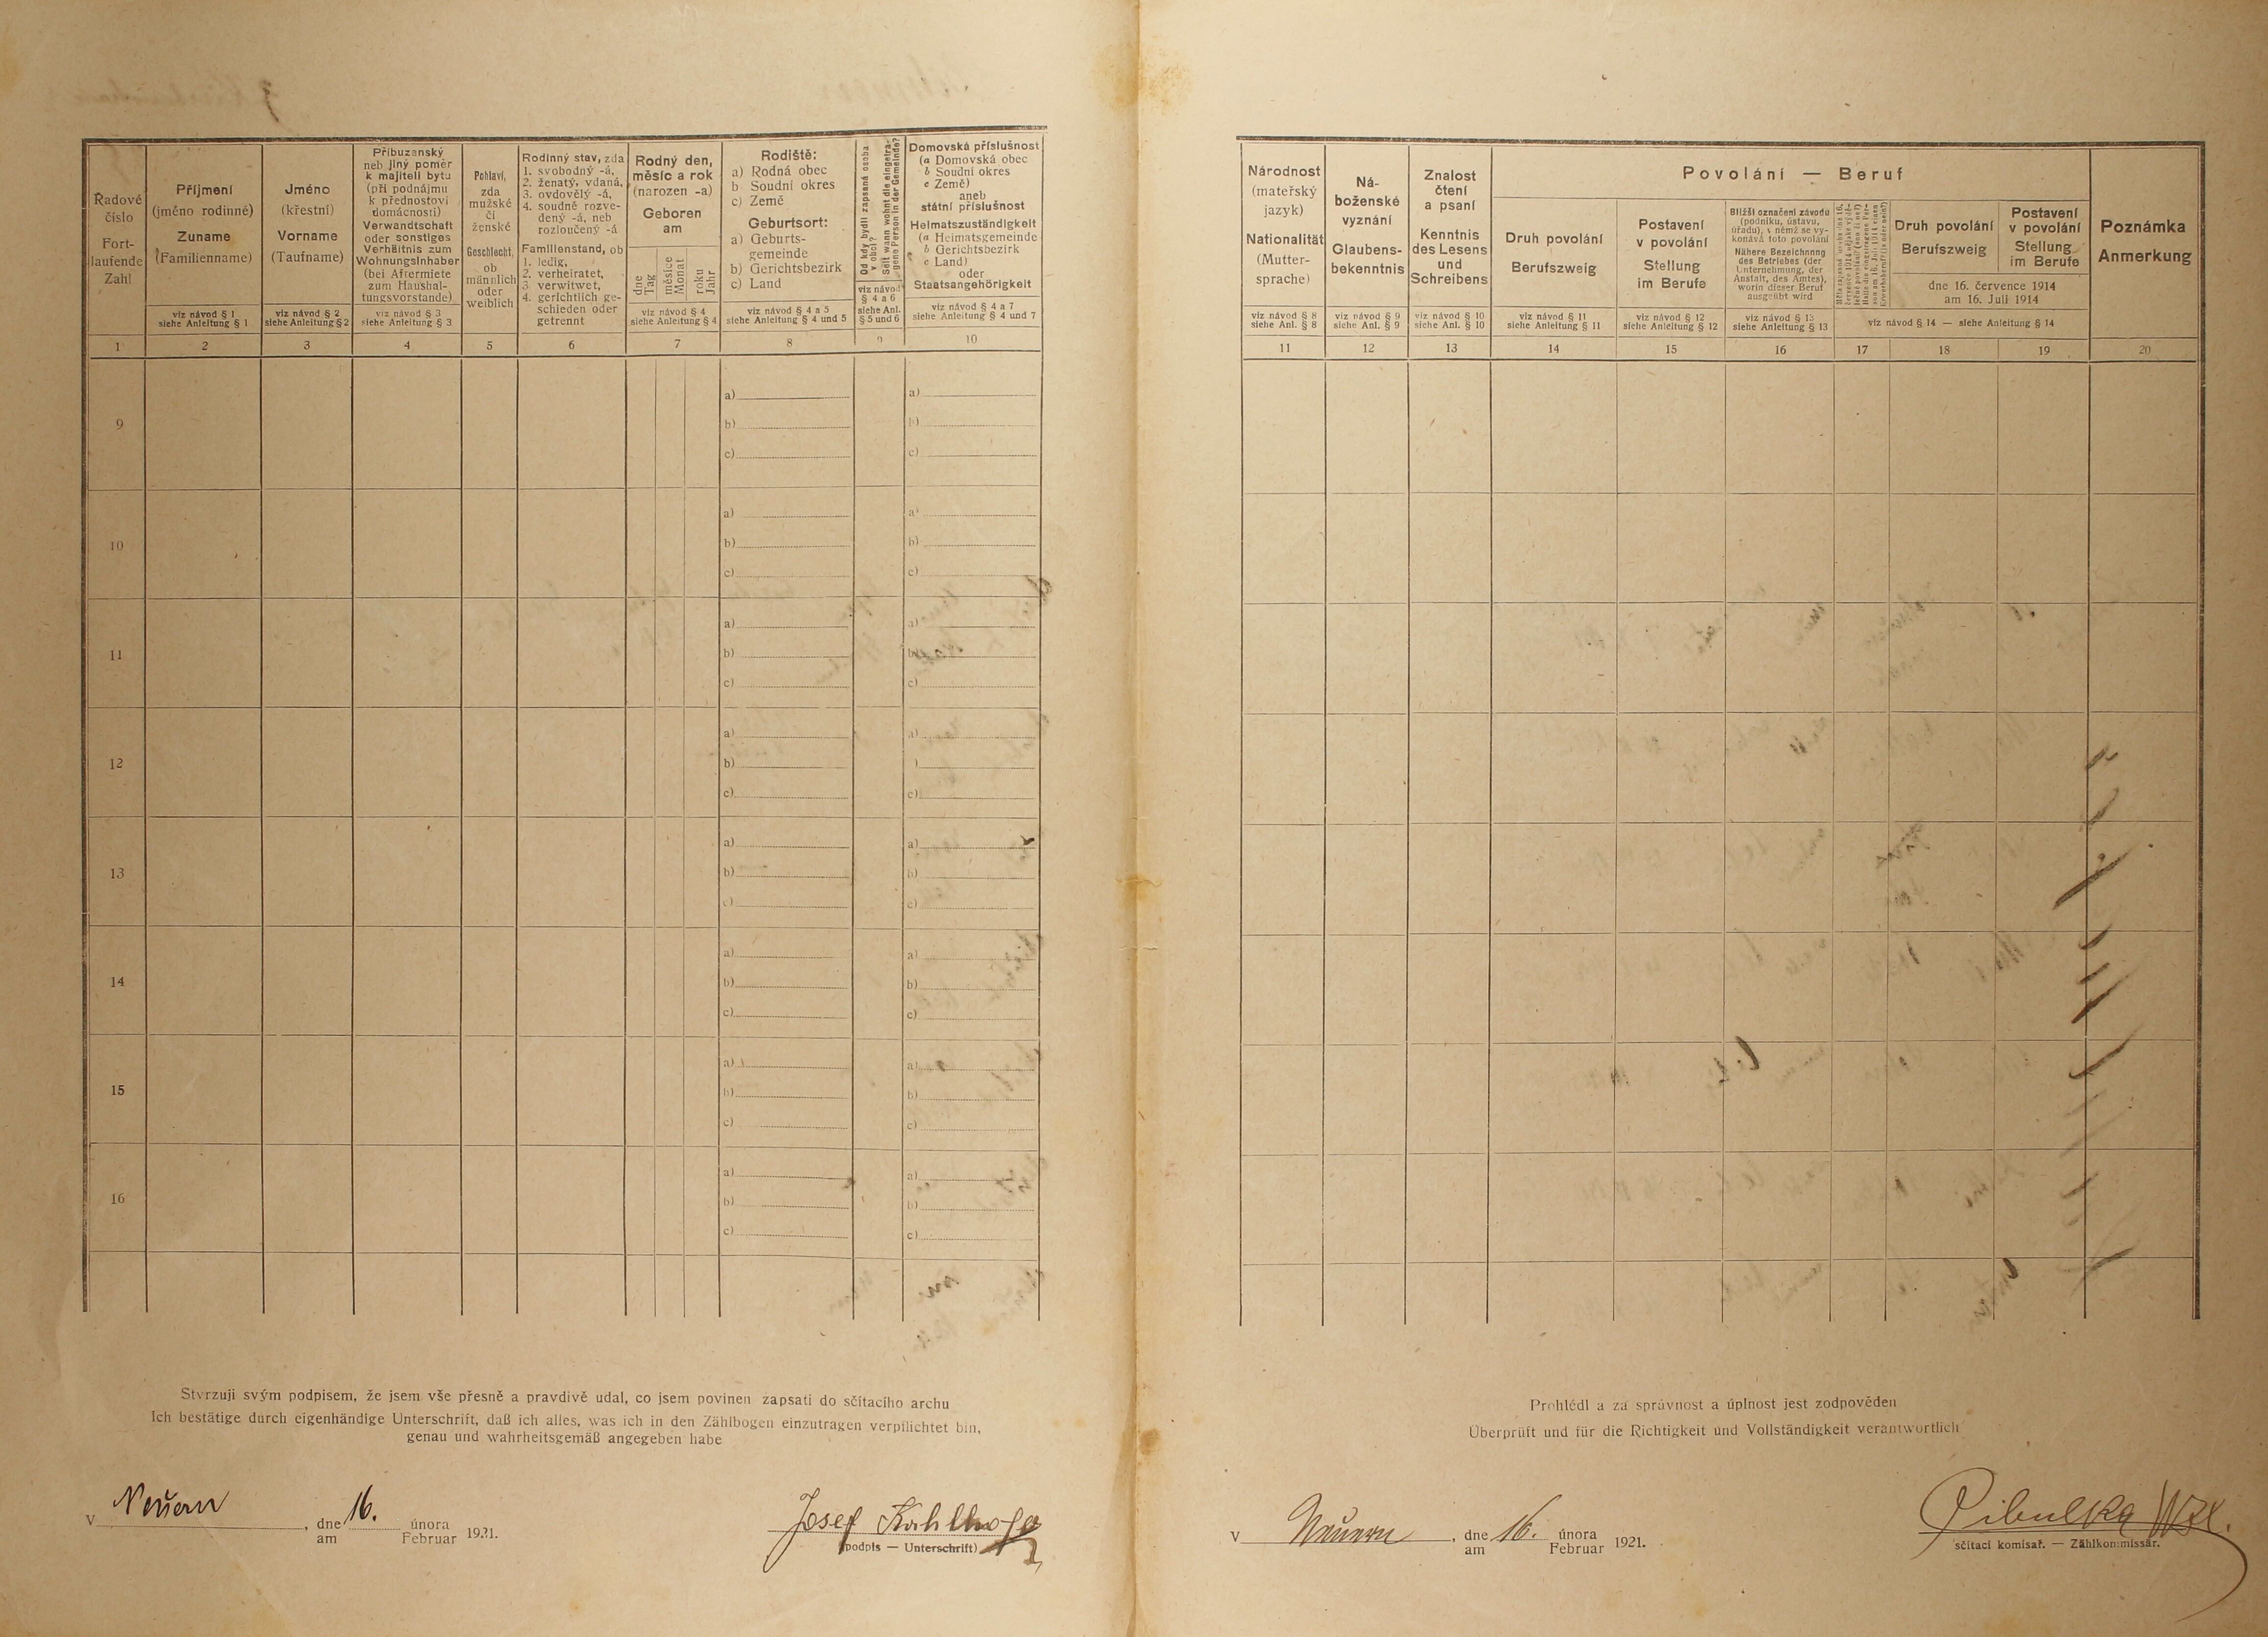 Řadové
číslo
Fort-
laufende
Zahl
1
Příjmení
(jméno rodinné)
Zuname
(Familienname)
viz návod § 1
siehe Anleitung § 1
2
Jméno
(křestní)
Vorname
(Taufname)
viz návod § 2
siehe Anleitung § 2
3
Příbuzenský
neb jiný poměr
k majiteli bytu
(při podnájmu
k přednostovi
domácnosti)
Verwandtschaft
oder sonstiges
Verhältnis zum
Wohnungsinhaber
(bei Aftermiete
zum Haushal-
tungsvorstande)
viz návod § 3
siehe Anleitung § 3
4
Pohlaví,
zda
mužské
či
ženské
Geschlecht,
ob
männlich
oder
weiblich
5
Rodinný stav, zda
1. svobodný -á,
2. ženatý, vdaná,
3. ovdovělý -á,
4. soudně rozve-
dený -á, neb
rozloučený -á
Familienstand, ob
1. ledig,
2. verheiratet,
3. verwitwet,
4. gerichtlich ge-
schieden oder
getrennt
6
Rodný den,
měsíc a rok
(narozen -a)
Geboren
am
dne
Tag
měsíce
Monat
roku
Jahr
viz návod § 4
siehe Anleitung § 4
7
Rodiště:
a) Rodná obec
b Soudní okres
c) Země
Geburtsort:
a) Geburts-
gemeinde
b) Gerichtsbezirk
c) Land
viz návod § 4 a 5
siehe Anleitung § 4 und 5
8
Od kdy bydlí zapsaná osoba
v obci?
Seit wann wohnt die eingetra-
gene Person in der Gemeinde?
viz návod
§ 4 a 6
siehe Anl.
§ 5 und 6
9
Domovská příslušnost
(a Domovská obec
b Soudní okres
c Země)
aneb
státní příslušnost
Heimatszuständigkeit
(a Heimatsgemeinde
b Gerichtsbezirk
c Land)
oder
Staatsangehörigkeit
viz návod § 4 a 7
siehe Anleitung § 4 und 7
10
9
a) a)
b) b)
c) c)
10
a) a)
b) b)
c) c)
11
a) a)
b) b)
c) c)
12
a) a)
b) )
c) c)
13
a) a)
b) b)
c) c)
14
a) a)
b) b)
c) c)
15
a) a)
b) b)
c) c)
16
a) a)
b) b)
c) c)
Stvrzuji svým podpisem, že jsem vše přesně a pravdivě udal, co jsem povinen zapsati do sčítacího archu
Ich bestätige durch eigenhändige Unterschrift, daß ich alles, was ich in den Zählbogen einzutragen verpflichtet bin,
genau und wahrheitsgemäß angegeben habe
V Neuern, dne am 16. února Februar 1921.
Josef
(podpis — Unterschrift)
Národnost
(mateřský
jazyk)
Nationalität
(Mutter-
sprache)
viz návod § 8
siehe Anl. § 8
11
Ná-
boženské
vyznání
Glaubens-
bekenntnis
viz návod § 9
siehe Anl. § 9
12
Znalost
čtení
a psaní
Kenntnis
des Lesens
und
Schreibens
viz návod § 10
siehe Anl. § 10
13
Povolání — Beruf
Druh povolání
Berufszweig
viz návod § 11
siehe Anleitung § 11
14
Postavení
v povolání
Stellung
im Berufe
viz návod § 12
siehe Anleitung § 12
15
Bližší označení závodu
(podniku, ústavu,
úřadu), v němž se vy-
konává toto povolání
Nähere Bezeichnung
des Betriebes (der
Unternehmung, der
Anstalt, des Amtes),
worin dieser Beruf
ausgeübt wird
viz návod § 13
siehe Anleitung § 13
16
17
Druh povolání
Berufszweig
18
Postavení
v povolání
Stellung
im Berufe
19
dne 16. července 1914
am 16. Juli 1914
viz návod § 14 — siehe Anleitung § 14
Poznámka
Anmerkung
20
Prohlédl a za správnost a úplnost jest zodpověden
Überprüft und für die Richtigkeit und Vollständigkeit verantwortlich
V Neuern, dne am 16. února Februar 1921.
sčítací komisař. — Zählkommissär.